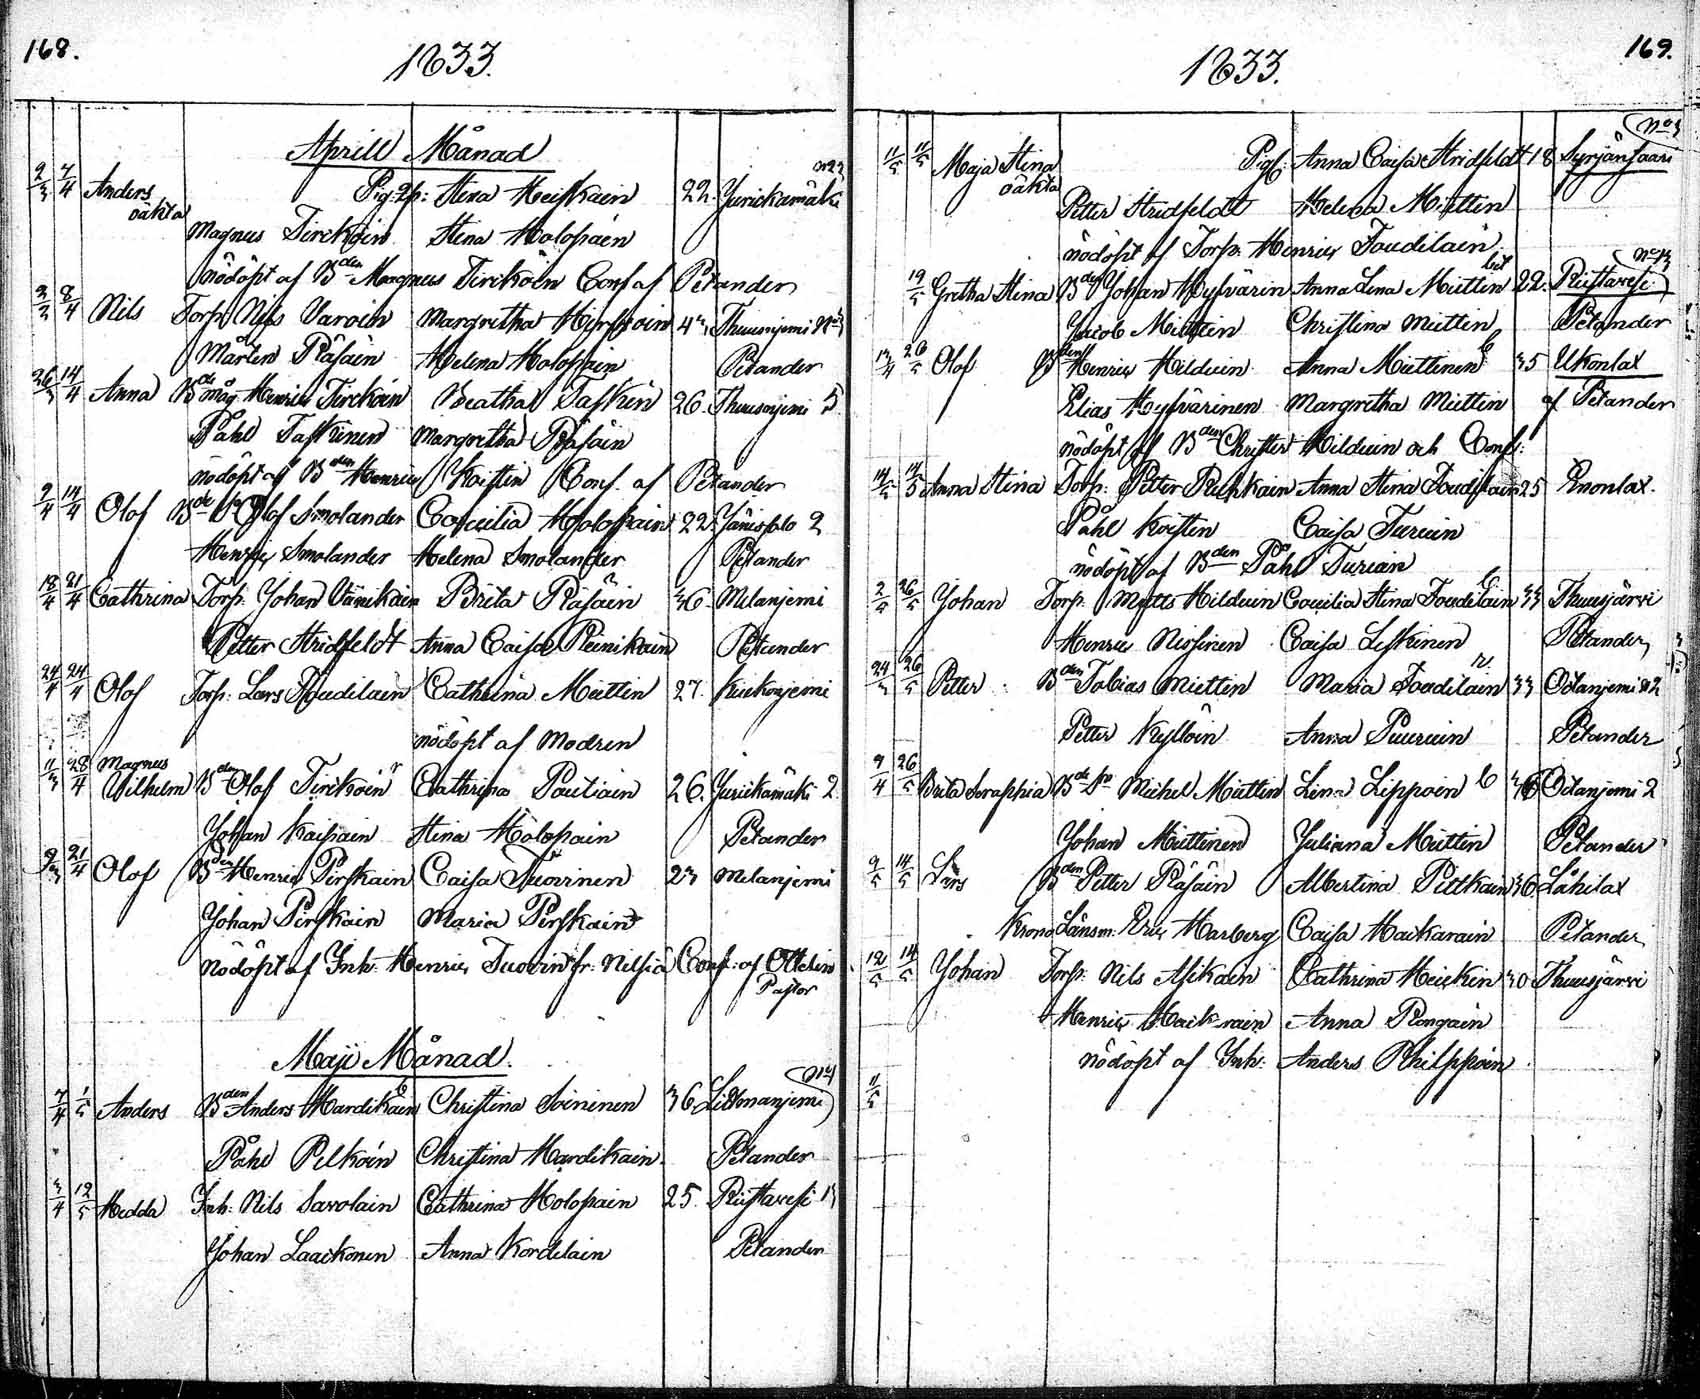 168.
1833.
Aprill Månad
2/3 7/4 Anders Pig. 2p: Stina Heiskain 22. Jurickamäki
oäkta
Magnus Tirckoin Stina Holopain
nödöpt af Bden Magnus Tirickoin Conf af Petander
8/4 Nils Torp. Nils Varoin Margretha Hirfvoin Thuusnjemi
Mårten Räsäin Helena Holopain Petander
26/3 14/4 Anna Henric Tirckoin Beatha Taskin 26. Thuusnjemi 5.
Påhl Taskinen Margretha Räsäin
nödöpt af Bden Henric Koistin Conf. af Petander
9/4 14/4 Olof Olof Smolander Caecilia Holopain 22. Jänissalo 2
Henric Smolander Helena Smolander Petander
18/4 21/4 Cathrina Torp. Johan Vänikain Brita Räsäin 36. Melanjemi
Petter Stridfeldt Anna Caisa Reinikain Petander
24/4 24/4 Olof Torp: Lars Joudilain Cathrina Miettin 27. Kukonjemi
nödöpt af Modren
11/3 28/4 Magnus
Wilhelm Bden Olof Tirickoin Cathrina Poutiain 26. Jurickamäki 2.
Johan Kaipain Stina Holopain Petander
21/4 Olof Bden Henric Pirskain Caisa Tuovinen 23 Melanjemi
Johan Pirskain Maria Pirskain
nödöpt af Inh. Henric Tuovin fr: Nilsiä Conf: af Ottelin
Pastor
Maji Månad.
7/4 1/5 Anders Bden Anders Hardikain Christina Soininen 36 Litmanjemi
Påhl Pelkoin Christina Hardikain Petander
3/4 12/5 Hedda Inh: Nils Savolain Cathrina Holopain 25. Riistavesi 13
Johan Laackonen Anna Kordelain Petander
169.
1833.
11/5 11/5 Maja Stina Pig: Anna Caisa Stridfeldt 18 Syrjänsaari
oäkta
Petter Stridfeldt Helena Miettin
nödöpt af Torp. Henric Joudilain
19/5 Gretha Stina Bden Johan Hyfvärin Anna Lena Miettin 22. Riistavesi
Jacob Miettin Christina Miettin Petander
13/4 26/5 Olof Bden Henric Hilduin Anna Miettinen 35 Ukonlax
Elias Hyfvärinen Margretha Miettin af Petander
nödöpt af Bden Christer Hilduin och Conf:
14/5 14/5 Anna Stina Torp: Petter Ruhkain Anna Stina Joudilain 25 Enonlax.
Påhl Koistin Caisa Turuin
nödöpt af Bden Påhl Turian
2/5 26/5 Johan Torp. Matts Hilduin Caecilia Stina Joudilain 33 Thuusjärvi
Henric Nissinen Caisa Leskinen Petander
24/3 26/5 Petter Bden Tobias Miettin Maria Joudilain 33 Ollanjemi 2
Petter Kylloin Anna Puuruin Petander
9/4 26/5 Brita Seraphia Michel Miettin Lena Lippoin 36 Ollanjemi 2
Johan Miettinen Juliana Miettin Petander
9/5 14/5 Lars Bden Petter Räsäin Albertina Pitkain 36. Låhilax
Krono Länsm. Eric Harberg Caisa Hackarain Petander
12/5 14/5 Johan Torp. Nils Asikain Cathrina Heickin 30 Thuusjärvi
Henric Hackarain Anna Rongain
nödöpt af Inh: Anders Philppoin
11/5